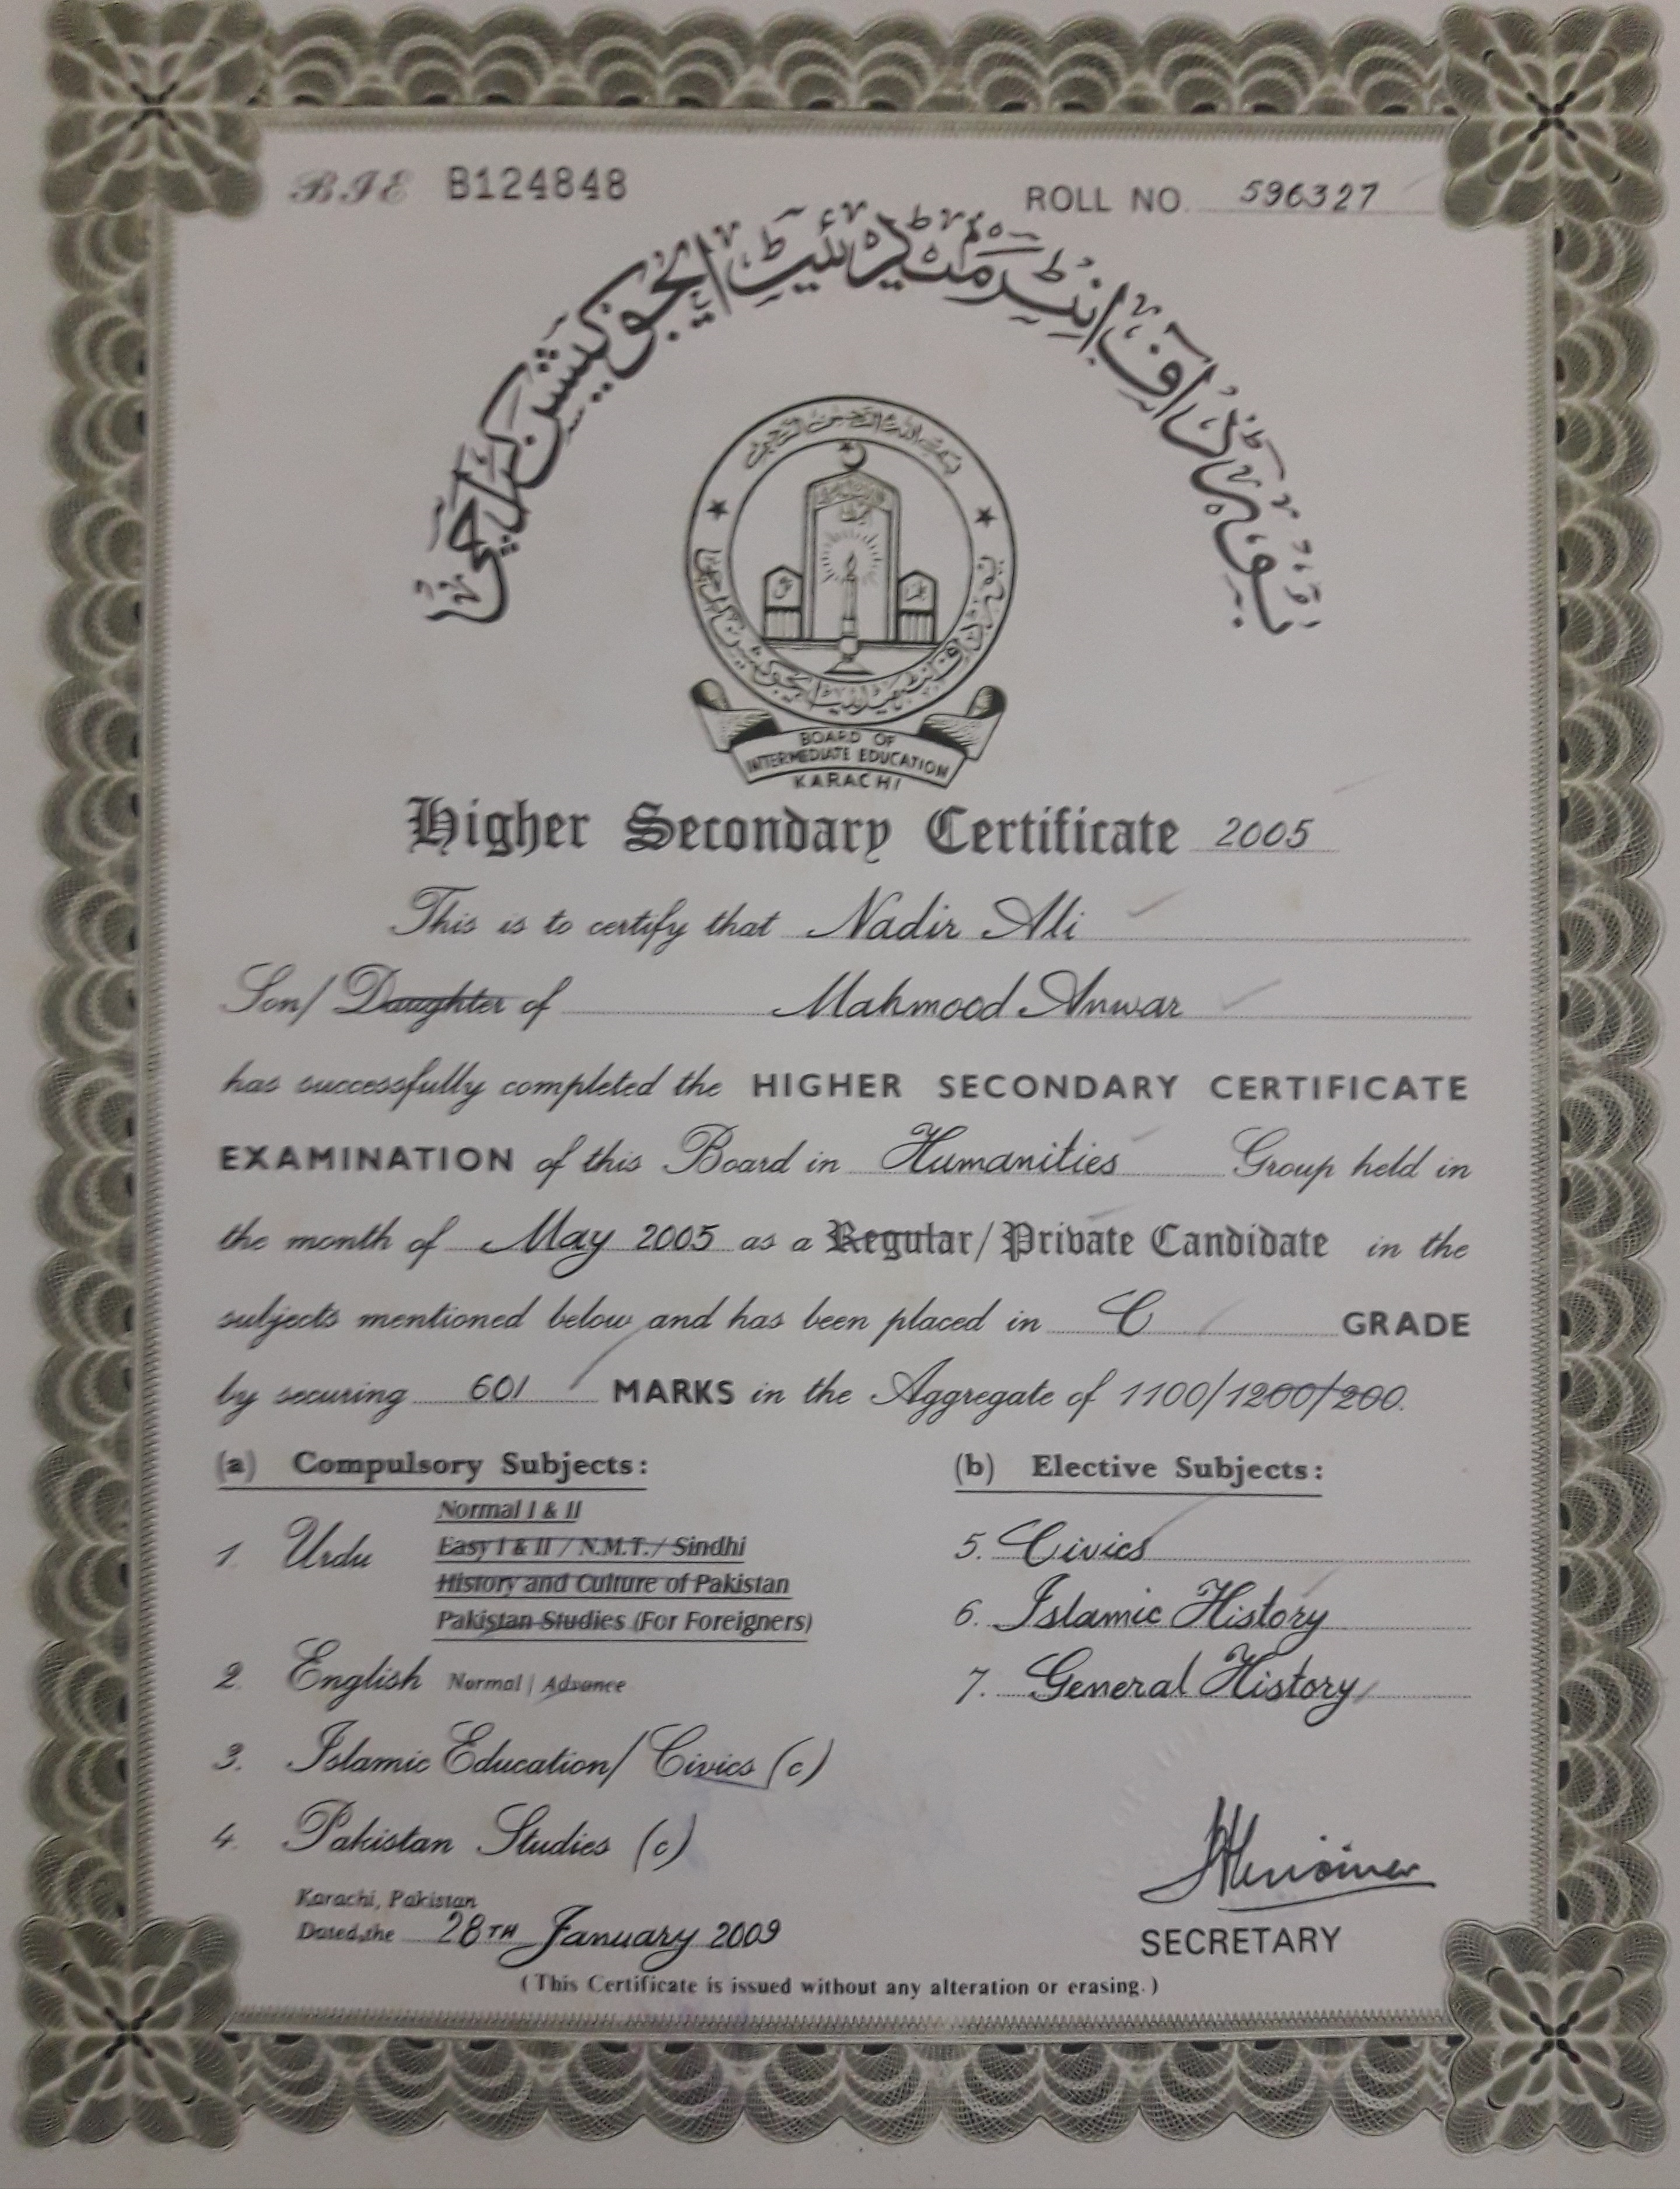 BIE B124848
ROLL NO. 596327
بورڈ آف انٹرمیڈیئیٹ ایجوکیشن کراچی
BOARD OF
INTERMEDIATE EDUCATION
KARACHI
Higher Secondary Certificate 2005
This is to certify that Nadir Ali
Son/ Daughter of Mahmood Anwar
has successfully completed the HIGHER SECONDARY CERTIFICATE
EXAMINATION of this Board in Humanities Group held in
the month of May 2005 as a Regular/Private Candidate in the
subjects mentioned below and has been placed in C GRADE
by securing 601 MARKS in the Aggregate of 1100/1200/200.
(a) Compulsory Subjects:
Normal I & II
1. Urdu Easy I & II / N.M.T. / Sindhi
History and Culture of Pakistan
Pakistan Studies (For Foreigners)
2. English Normal | Advance
3. Islamic Education/ Civics (c)
4. Pakistan Studies (c)
(b) Elective Subjects:
5. Civics
6. Islamic History
7. General History
Karachi, Pakistan
Dated, the 28TH January 2009
SECRETARY
(This Certificate is issued without any alteration or erasing.)